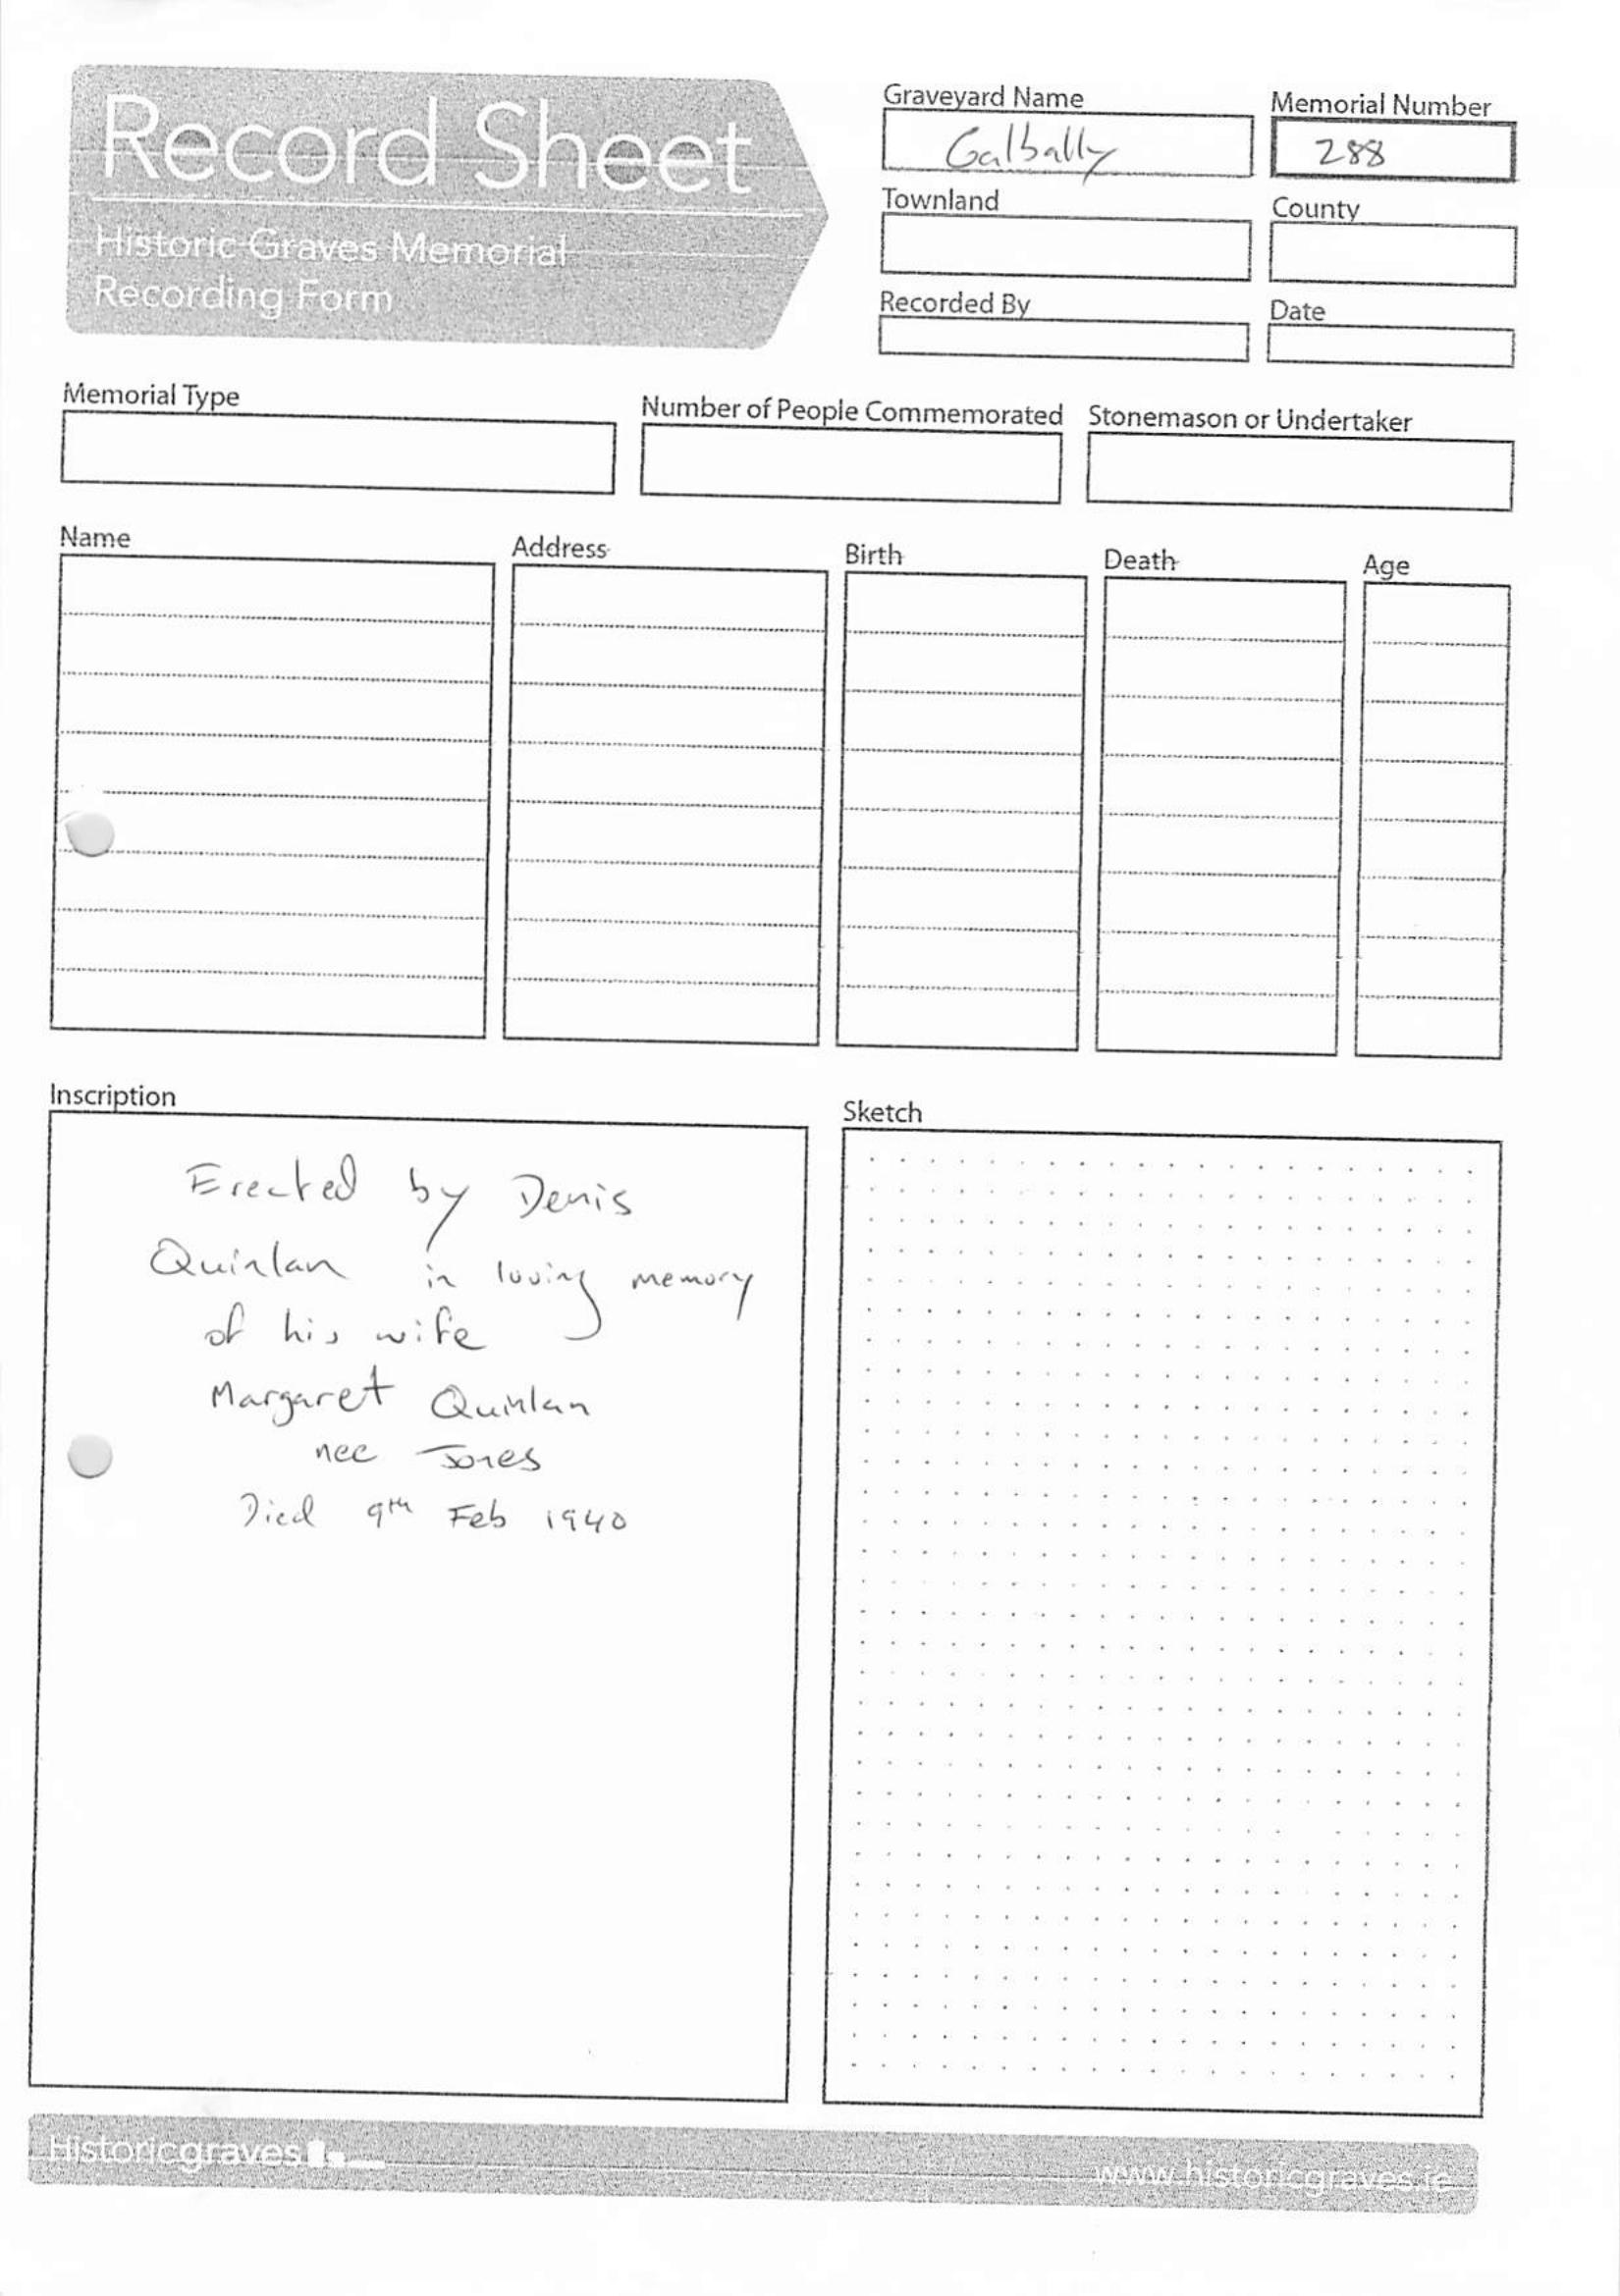 Record Sheet
Historic Graves Memorial
Recording Form
Graveyard Name
Galbally
Memorial Number
288
Townland
County
Recorded By
Date
Memorial Type
Number of People Commemorated
Stonemason or Undertaker
Name
Address
Birth
Death
Age
Inscription
Erected by Denis
Quinlan in loving memory
of his wife
Margaret Quinlan
nee Jones
Died 9th Feb 1940
Sketch
Historicgraves
www.historicgraves.ie